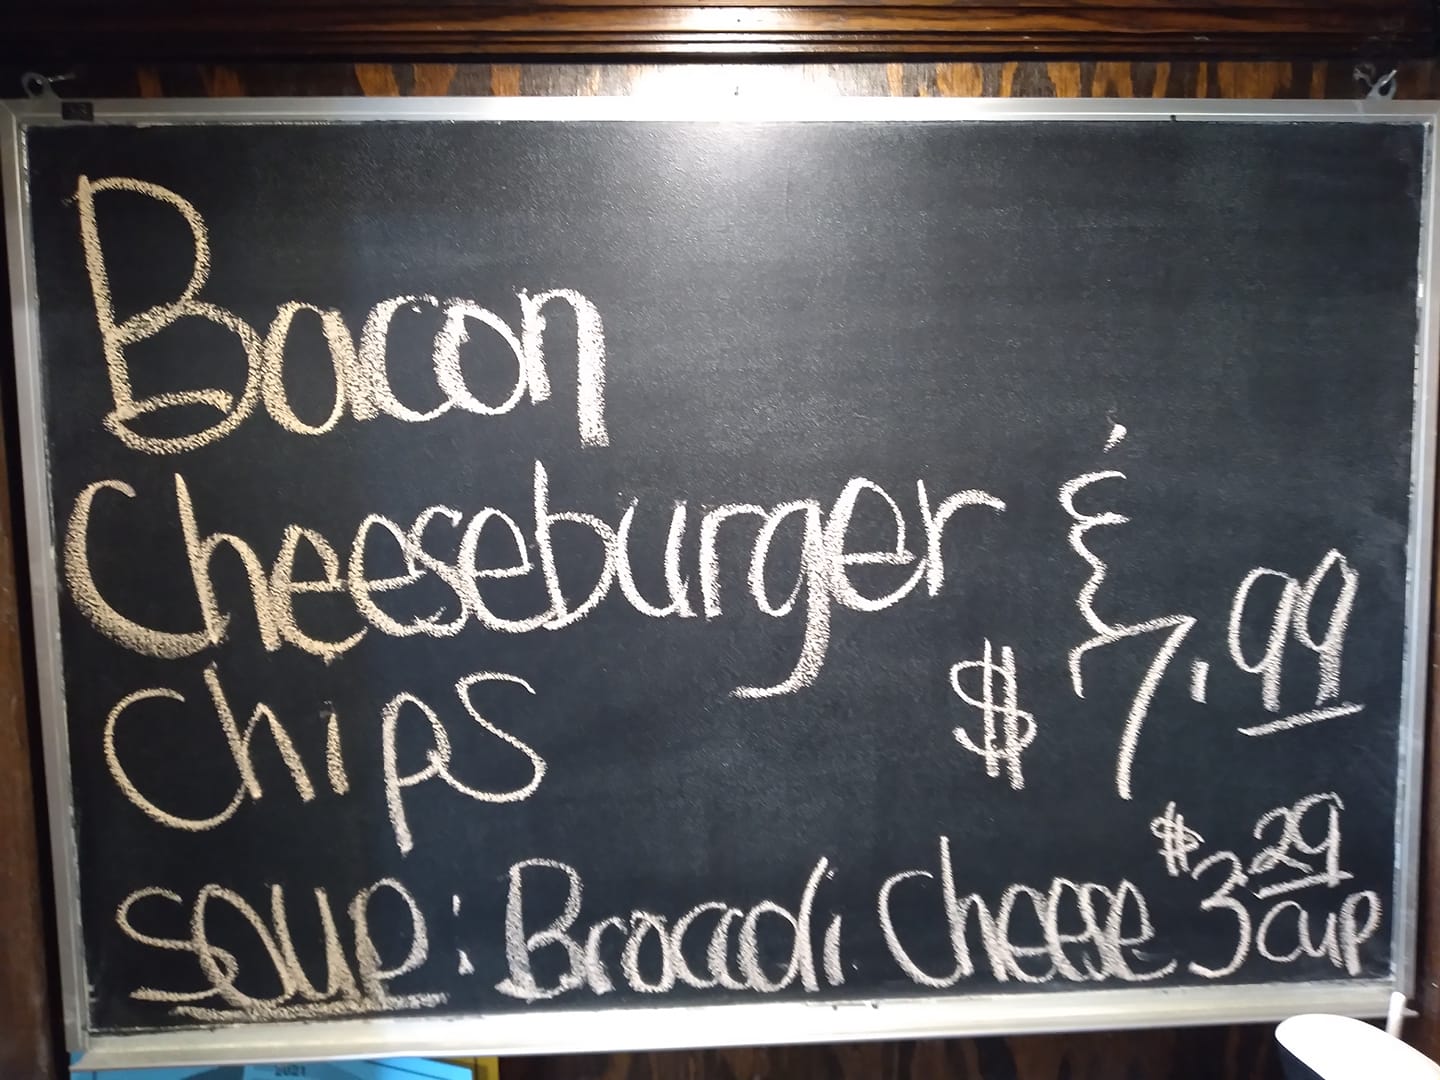 Bacon
Cheeseburger &
Chips $7.99
Soup: Broccoli Cheese $3.29 cup
2021